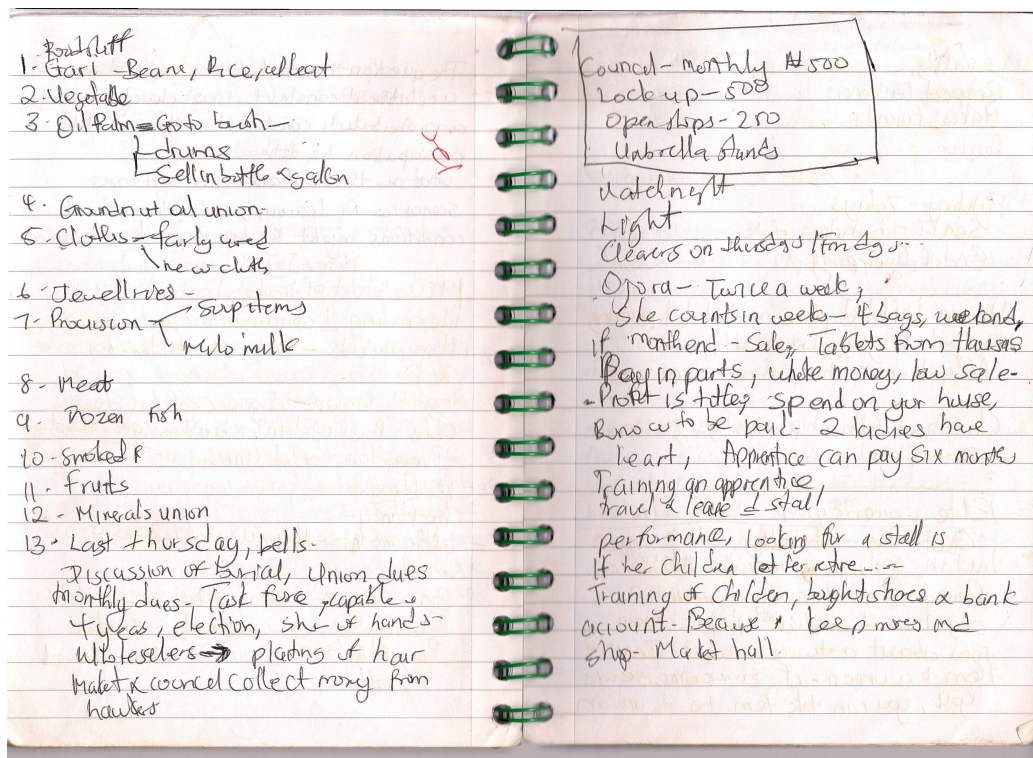 Foodstuff
1- Gari - Beans, Rice, all eat
2- Vegetable
3- Oil Palm = Go to bush -
drums
Sell in bottle & gallon
4- Groundnut oil union
5- Cloths - fairly used
new cloth
6- Jewellries -
7- Provision - Soup items
milo milk
8- Meat
9- Dozen Fish
10- Smoked F
11- Fruits
12- Minerals union
13- Last thursday, bells-
Discussion of burial, Union dues
monthly dues- Task force, capable
4 years, election, show of hands-
Wholesalers → plaiting of hair
Market & council collect money from
hawkers
Council- monthly ₦500
Lock up- 500
Open shops- 250
Unbrella stands
Watchnight
Light
Cleaners on thursdays / Fridays...
Ojora- Twice a week,
She counts in weeks- 4 bags, weekend,
if month end - Sale, Tablets from Hausas
Pay in parts, whole money, low sale-
- Profit is little, spend on your house,
to be paid 2 ladies have
heart, Apprentice can pay six months
Training an apprentice,
travel & leave stall
performance, looking for a stall is
If her children
Training of children, bought shoes & bank
account- Because keep money and
shop- Market hall.